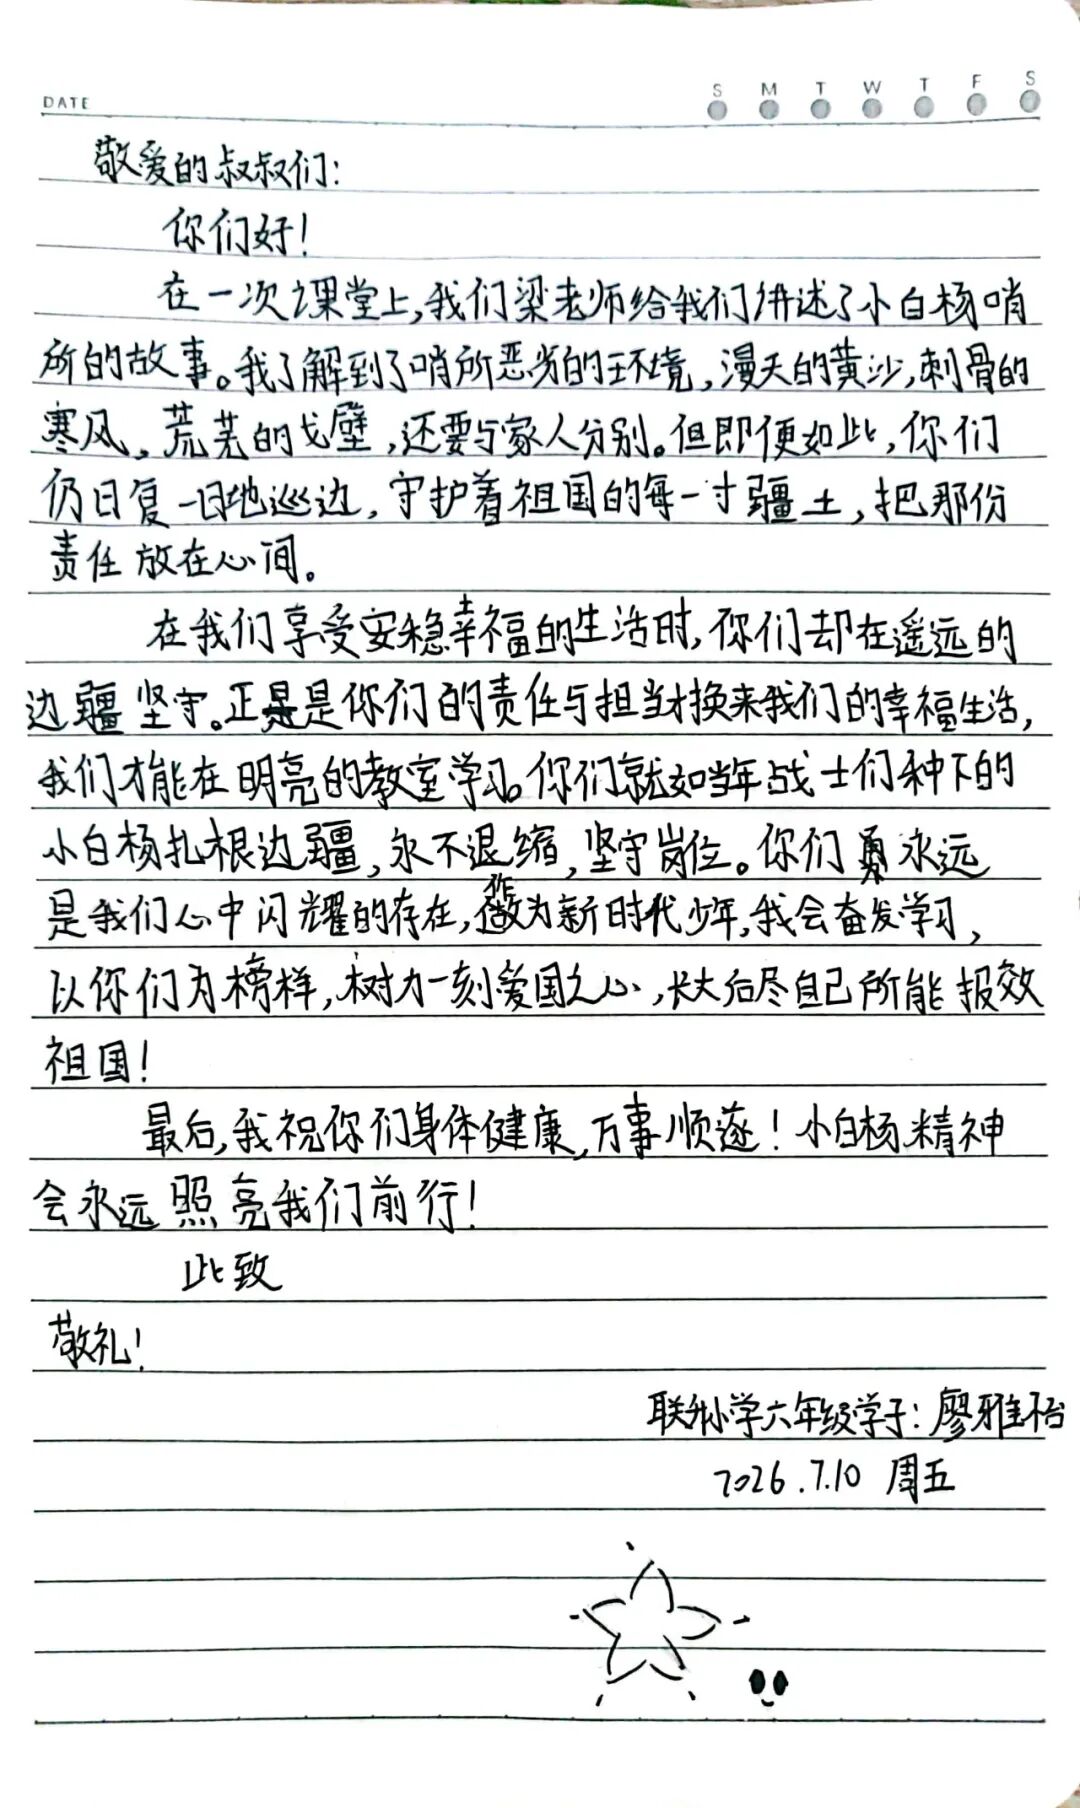 DATE
S M T W T F S
敬爱的叔叔们：
你们好！
在一次课堂上，我们梁老师给我们讲述了小白杨哨
所的故事。我了解到了哨所恶劣的环境，漫天的黄沙，刺骨的
寒风，荒芜的戈壁，还要与家人分别。但即便如此，你们
仍日复一日地巡边，守护着祖国的每一寸疆土，把那份
责任放在心间。
在我们享受安稳幸福的生活时，你们却在遥远的
边疆坚守。正是你们的责任与担当才换来我们的幸福生活，
我们才能在明亮的教室学习。你们就如当年战士们种下的
小白杨扎根边疆，永不退缩，坚守岗位。你们永远
是我们心中闪耀的存在，作为新时代少年，我会奋发学习，
以你们为榜样，树力一刻爱国之心，长大后尽自己所能报效
祖国！
最后，我祝你们身体健康，万事顺遂！小白杨精神
会永远照亮我们前行！
此致
敬礼！
联升小学六年级学子：廖雅怡
2026.7.10 周五